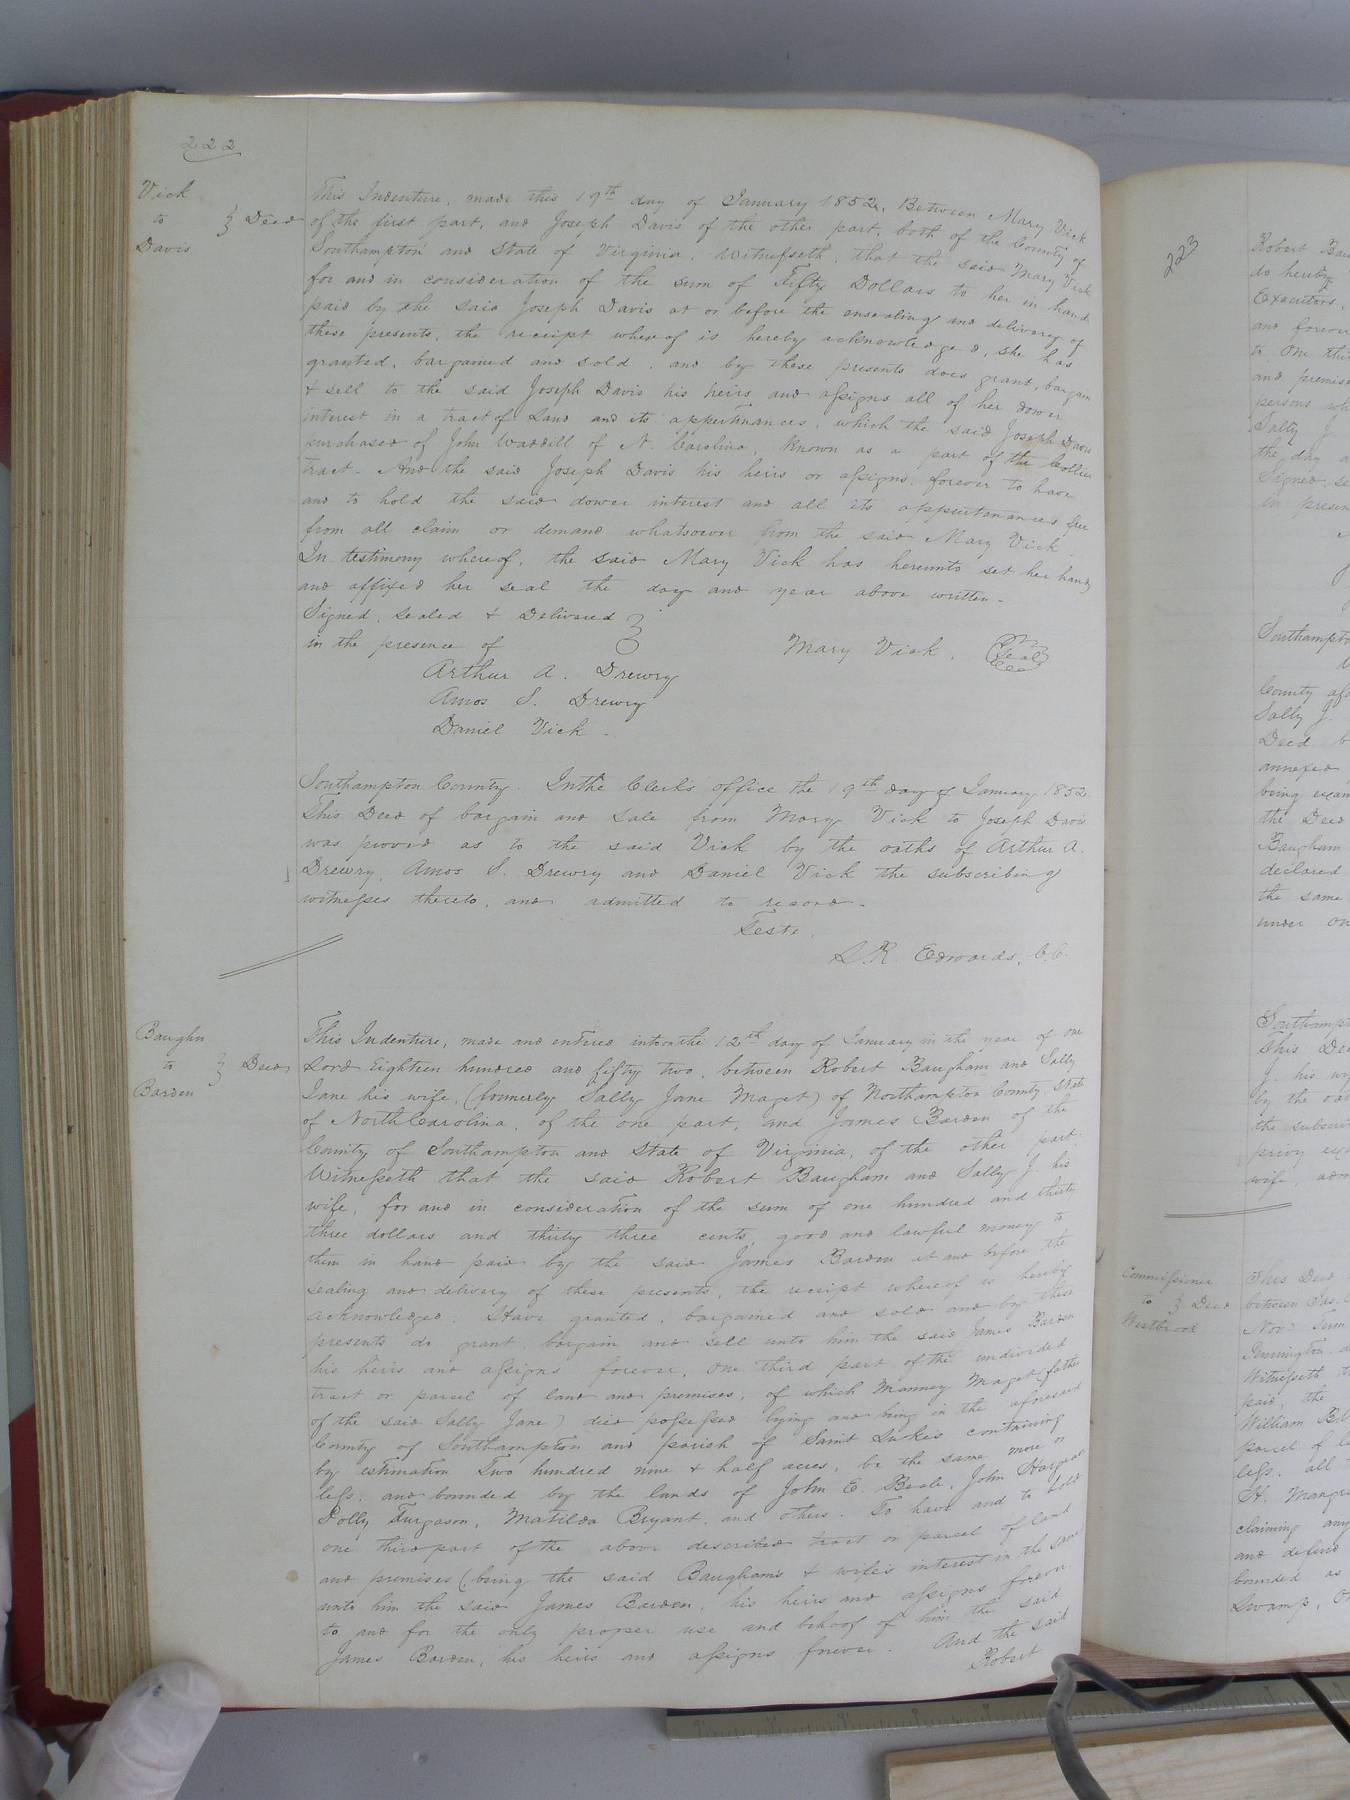 222
Vick
to } Deed
Davis
This Indenture, made this 19th day of January 1852, Between Mary Vick
of the first part, and Joseph Davis of the other part, both of the County of
Southampton and State of Virginia, Witnesseth, that the said Mary Vick
for and in consideration of the sum of Fifty Dollars to her in hand
paid by the said Joseph Davis at or before the ensealing and delivery of
these presents, the receipt whereof is hereby acknowledged, she has
granted, bargained and sold, and by these presents does grant, bargain
& sell to the said Joseph Davis his heirs and assigns all of her dower
interest in a tract of Land and its appertinances, which the said Joseph Davis
purchased of John Waddill of N. Carolina, known as a part of the Collier
tract. And the said Joseph Davis his heirs or assigns forever to have
and to hold the said dower interest and all its appurtenances free
from all claim or demand whatsoever from the said Mary Vick.
In testimony whereof, the said Mary Vick has hereunto set her hand
and affixed her seal the day and year above written.
Signed, sealed & Delivered }
in the presence of Mary Vick. Seal
Arthur A. Drewry
Amos S. Drewry
Daniel Vick.
Southampton County. In the Clerk's office the 19th day of January 1852
This Deed of bargain and sale from Mary Vick to Joseph Davis
was proved as to the said Vick by the oaths of Arthur A.
Drewry, Amos S. Drewry and Daniel Vick the subscribing
witnesses thereto, and admitted to record.
Teste.
L. R. Edwards, C.C.
Baughn
to } Deed
Barden
This Indenture, made and entered into on the 12th day of January in the year of our
Lord Eighteen hundred and fifty two, between Robert Baugham and Sally
Jane his wife, (formerly Sally Jane Maget) of Northampton County State
of North Carolina, of the one part, and James Barden of the
County of Southampton and State of Virginia, of the other part:
Witnesseth that the said Robert Baugham and Sally J. his
wife, for and in consideration of the sum of one hundred and thirty
three dollars and thirty three cents, good and lawful money to
them in hand paid by the said James Barden at and before the
sealing and delivery of these presents, the receipt whereof is hereby
acknowledged. Have granted, bargained and sold and by these
presents do grant, bargain and sell unto him the said James Barden
his heirs and assigns forever, One third part of the undivided
tract or parcel of land and premises, of which Manney Maget (father
of the said Sally Jane) died possessed lying and being in the aforesaid
County of Southampton and parish of Saint Luke's containing
by estimation Two hundred nine & half acres, be the same more or
less, and bounded by the lands of John E. Beale, John
Polly Furgason, Matilda Bryant, and others. To have and to hold
one third part of the above described tract or parcel of land
and premises (being the said Baugham's & wife's interest in the same
unto him the said James Barden, his heirs and assigns forever
to and for the only proper use and behoof of him the said
James Barden, his heirs and assigns forever. And the said
Robert
223
Robert
do hereby
Executors,
and forever
to One
and
persons
Sally J.
the day
Signed
in
Southampton
County
Sally J.
Deed
annexed
being
the Deed
Baugham
declared
the same
under
This
J. his
by the
the
privy
wife,
Commissioner
to } Deed
Westbrook
This Deed
between
Nov:
Pennington
Witnesseth
paid, the
William
parcel of
less. all
H.
claiming any
and defend
bounded as
Swamp,